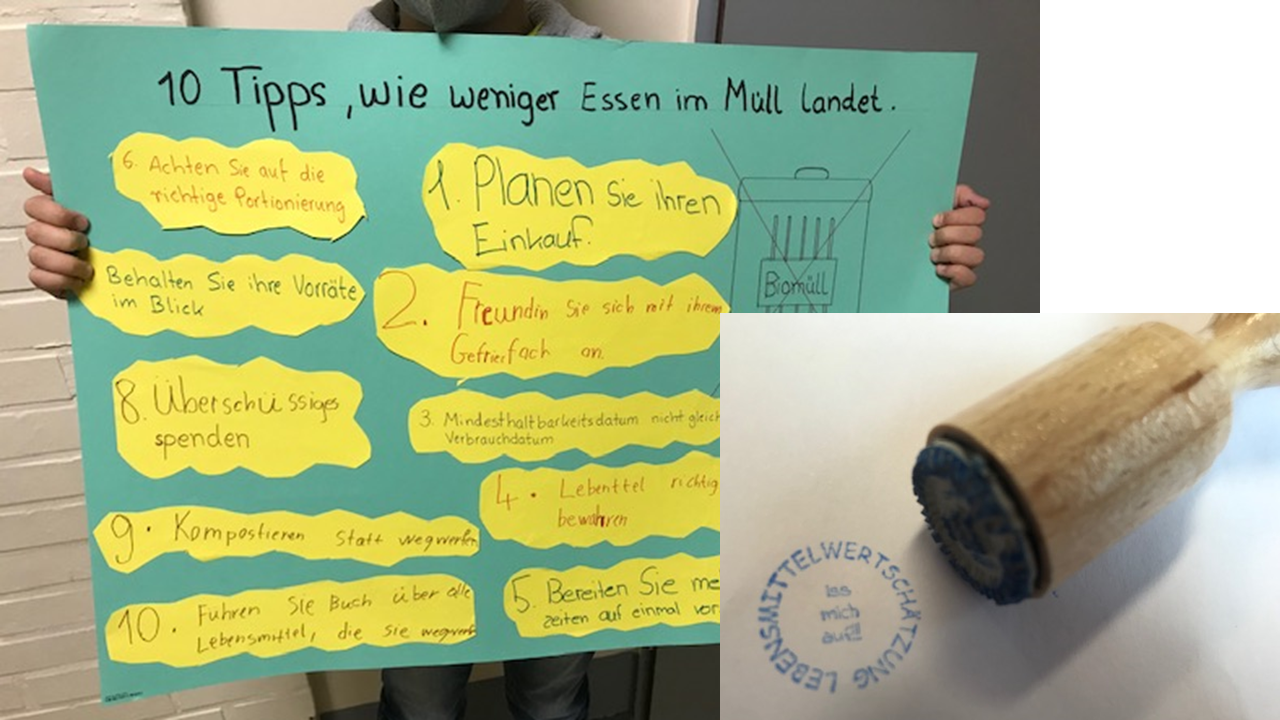 10 Tipps, wie weniger Essen im Müll landet.
6. Achten Sie auf die
richtige Portionierung
Behalten Sie ihre Vorräte
im Blick
8. Überschüssiges
spenden
9. Kompostieren statt wegwerfen
10. Führen Sie Buch über alle
Lebensmittel, die sie wegwerf
1. Planen Sie ihren
Einkauf.
2. Freundin Sie sich mit ihrem
Gefrierfach an.
3. Mindesthaltbarkeitsdatum nicht gleich
Verbrauchdatum
4. Lebenttel richtig
bewahren
5. Bereiten Sie me
zeiten auf einmal vor
Biomüll
LEBENSMITTELWERTSCHÄTZUNG
Iss
mich
auf!!